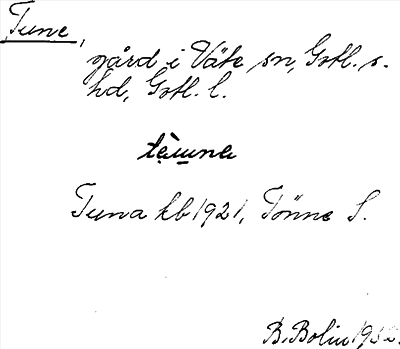 Tune,
gård i Väte sn, Gotl. s.
hd, Gotl. l.
tạ̀u̲na
Tuna kb 1921, Tönne S.
B. Bolin